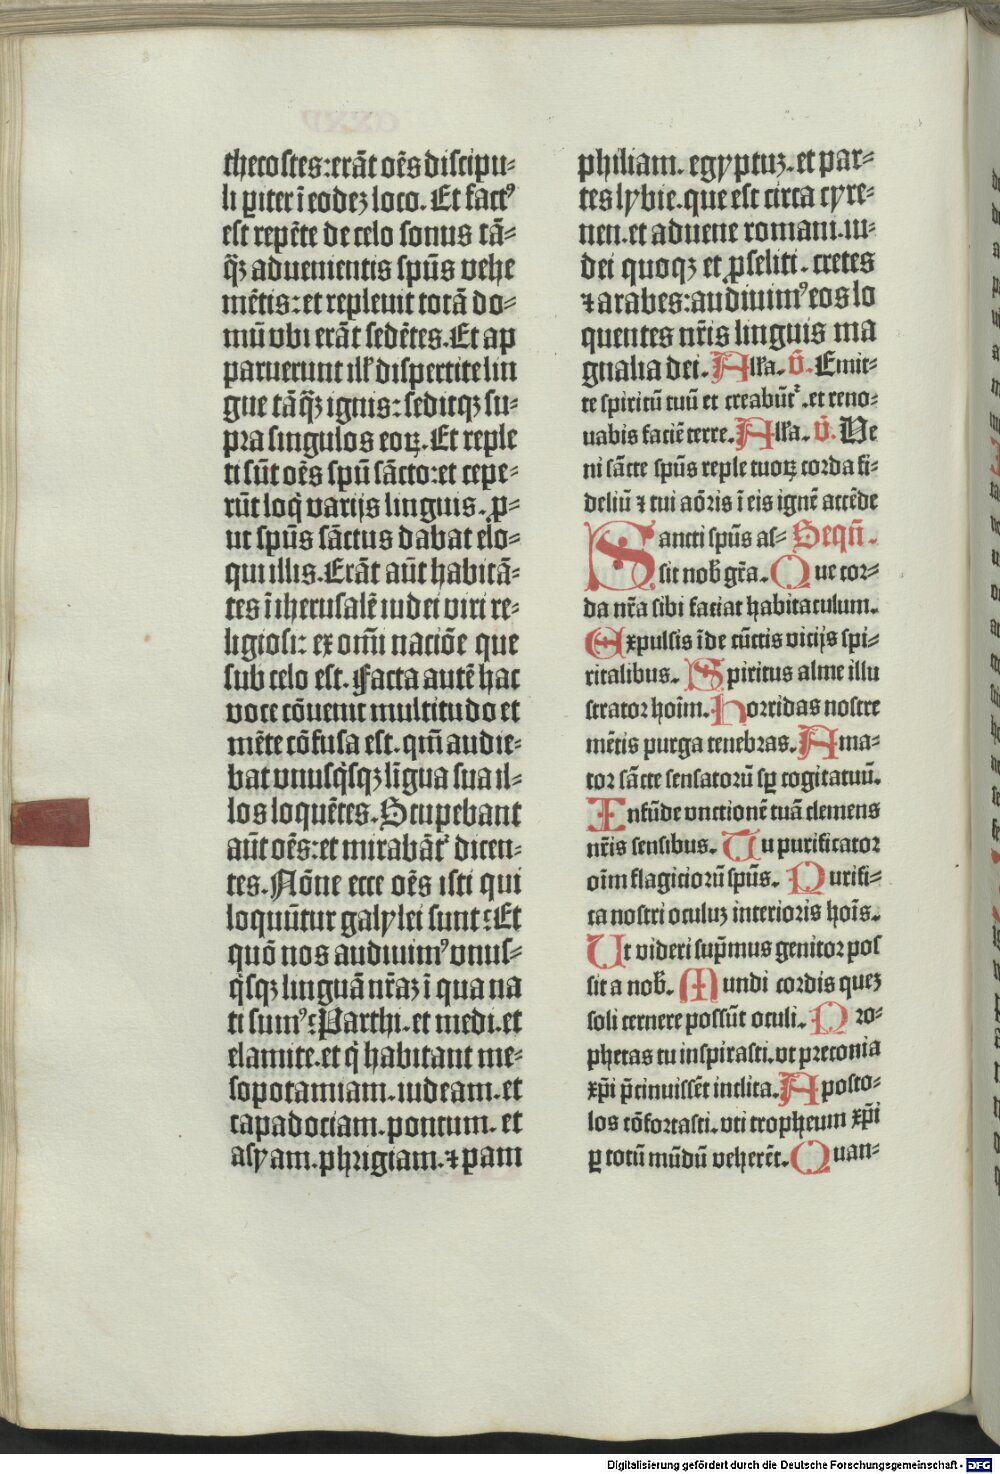 thecostes:erāt oēs discipu-
li ꝑiter ī eodeꝫ loco. Et factꝰ
est repēte de celo sonus tā-
q̄ꝫ aduenientis spūs vehe
mētis:et repleuit totā do-
mū vbi erāt sedētes. Et ap
paruerunt ill' dispertite lin
gue tāq̄ꝫ ignis:seditqꝫ su-
pra singulos eoꝝ. Et reple
ti sūt oēs spū sācto:et cepe-
rūt loq̇ varijs linguis. ꝓ-
ut spūs sāctus dabat elo-
qui illis. Erāt aūt habitā-
tes ī iherusalē iudei viri re-
ligiosi: ex om̄i naciōe que
sub celo est. Facta autē hac
voce cōuenit multitudo et
mēte cōfusa est. qm̄ audie-
bat vnusq̇sqꝫ līgua sua il-
los loquētes. Stupebant
aūt oēs:et mirabāt᷑ dicen-
tes. Nōne ecce oēs isti qui
loquūtur galylei sunt: Et
quō nos audiuimꝰ vnus-
q̇sqꝫ linguā nr̄aꝫ ī qua na
ti sumꝰ: Parthi. et medi. et
elamite. et q̇ habitant me-
sopotamiam. iudeam. et
capadociam. pontum. et
asyam. phrigiam. ⁊ pam
philiam. egyptuꝫ. et par-
tes lybie. que est circa cyre-
nen. et aduene romani. iu-
dei quoqꝫ et ꝓseliti. cretes
⁊ arabes:audiuimꝰ eos lo
quentes nr̄is linguis ma
gnalia dei. All'a. V̄. Emit-
te spiritū tuū et creabūt᷑. et reno-
uabis faciē terre. All'a. V̄. Ve
ni sācte spūs reple tuoꝝ corda fi-
deliū ⁊ tui aōris ī eis ignē accēde
Sancti spūs as- Sequē.
sit nob̄ gr̄a. Que cor-
da nr̄a sibi faciat habitaculum.
Expulsis īde cūctis vicijs spi-
ritalibus. Spiritus alme illu
strator hoīm. Horridas nostre
mētis purga tenebras. Ama-
tor sācte sensatorū sꝑ cogitatuū.
Infūde vnctionē tuā clemens
nr̄is sensibus. Tu purificator
oīm flagiciorū spūs. Purifi-
ca nostri oculuꝫ interioris hoīs.
Ut videri sup̄mus genitor pos
sit a nob̄. Mundi cordis queꝫ
soli cernere possūt oculi. Pro-
phetas tu inspirasti. vt preconia
xp̄i p̄cinuissēt inclita. Aposto-
los cōfortasti. vti tropheum xp̄i
ꝑ totū mūdū veherēt. Quan-
Digitalisierung gefördert durch die Deutsche Forschungsgemeinschaft - DFG